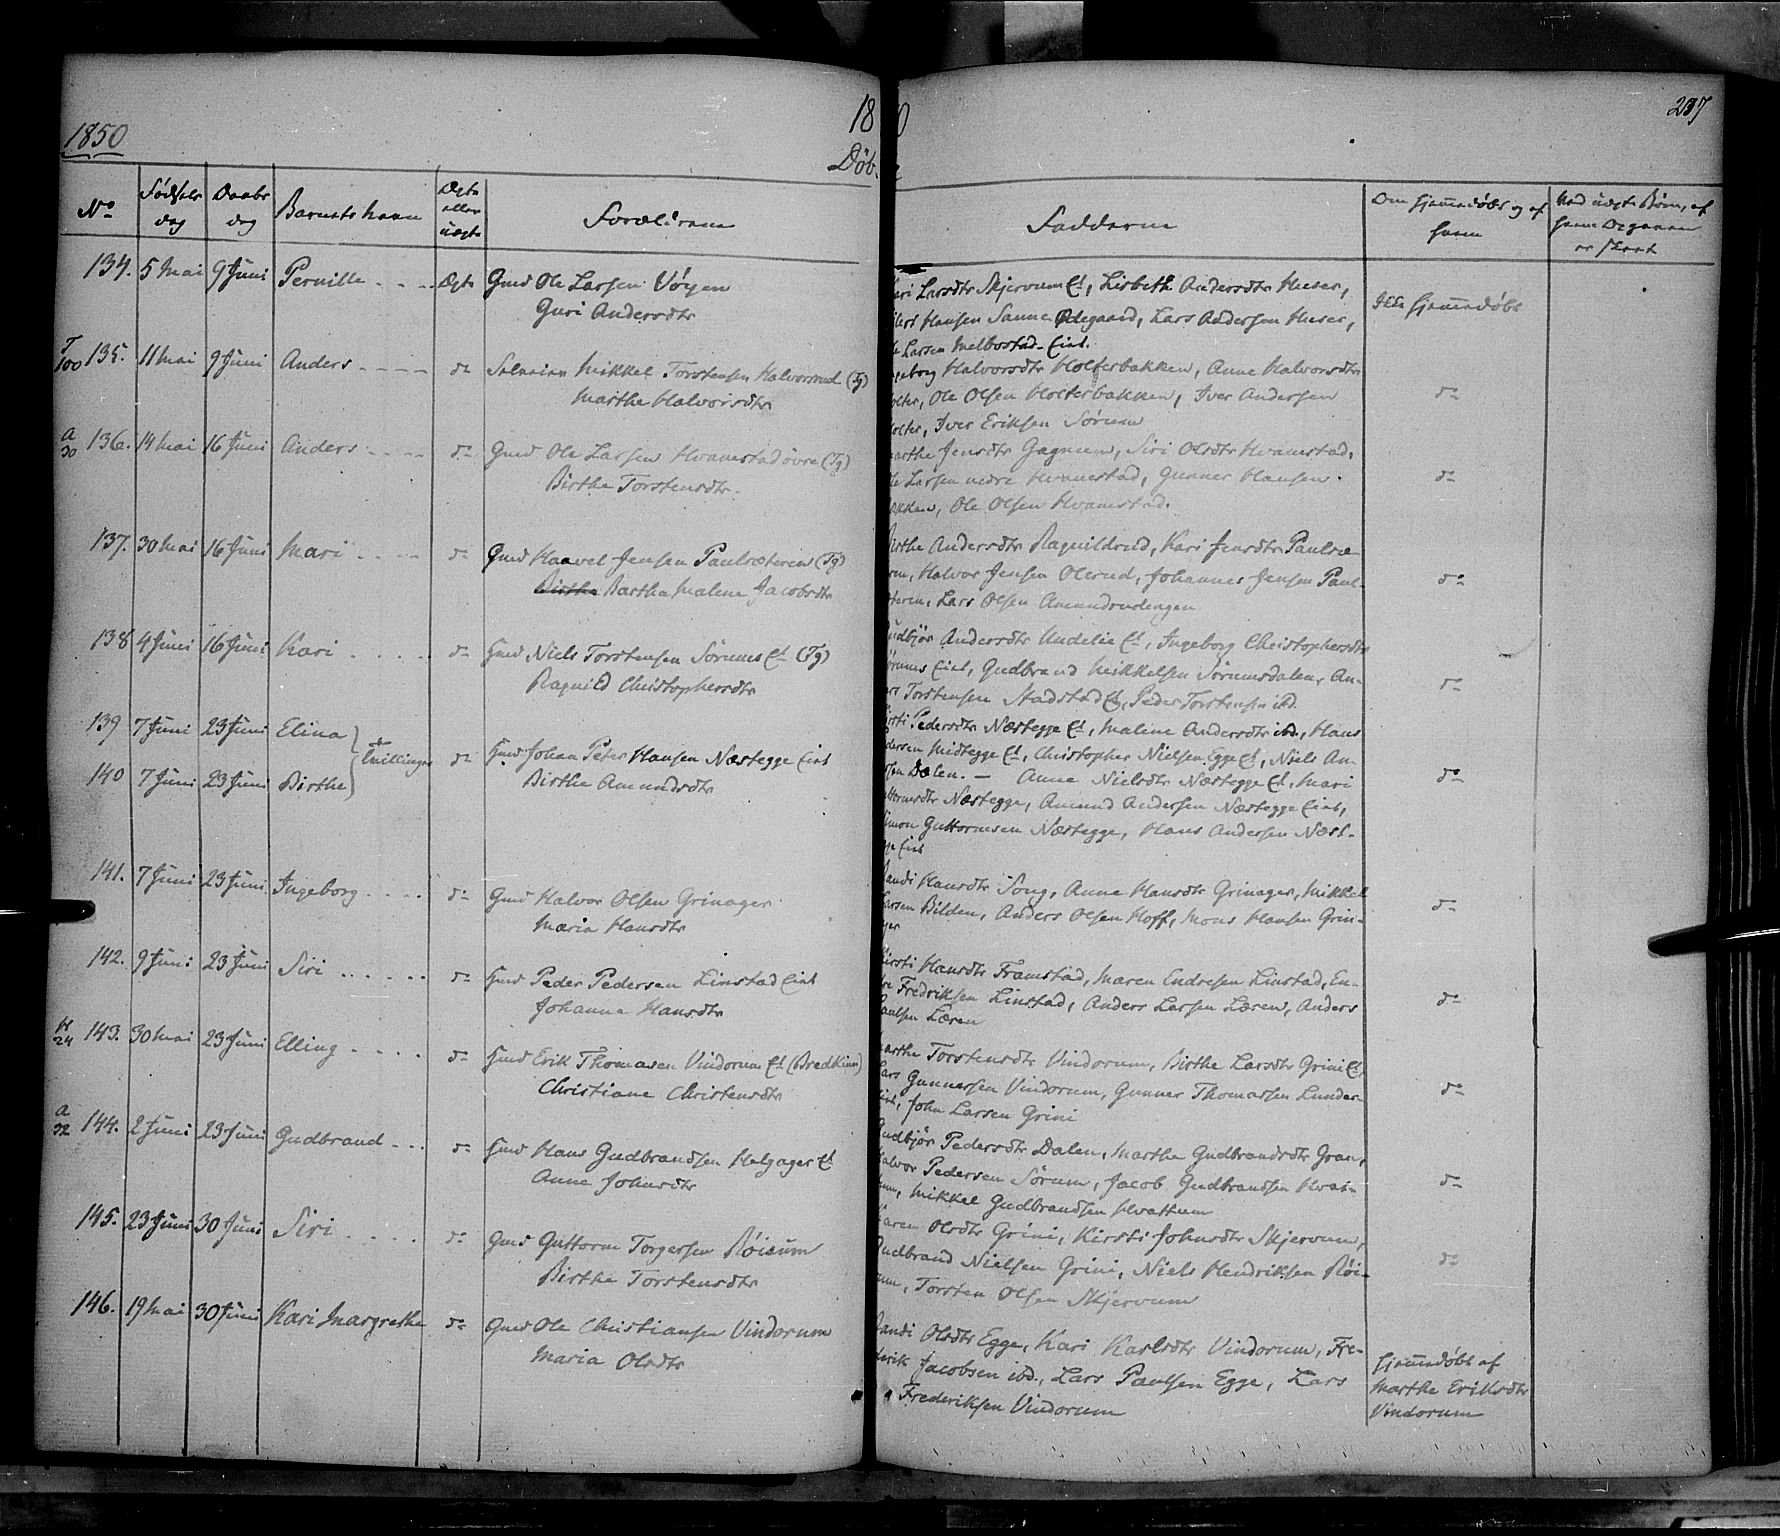 1850
18
0
207
Døb
No
Fødsels
dag
Daabs
dag
Barnets Navn
Ægte
eller
uægte
Forældrene
Fadderne
Om hjemmedøbt og af
hvem
Ved uægte Børn, af
134. 5 Mai 9 Juni Pernille Ægte Gmd Ole Larsen Vøyen
Guri Andersdtr
Larsdtr Skjervum Et, Lisbeth Andersdtr Huser,
Hansen Sanne Ødegaard, Lars Andersen Huser,
Larsen Melbostad Eiet.
Ikke hjemmedøbt
T
100 135. 11 Mai 9 Juni Anders do Selveier Mikkel Torstensen Halvorsrud (Tg)
Marthe Halvorsdtr
Halvorsdtr Holterbakken, Anne Halvorsdtr
Ole Olsen Holterbakken, Iver Andersen
Iver Eriksen Sørum
do
A
30 136. 14 Mai 16 Juni Anders do Gmd Ole Larsen Hvamstad øvre (Tg)
Birthe Torstensdtr.
Jensdtr Gagnum, Siri Olsdtr Hvamstad,
Larsen nedre Hvamstad, Gunner Hansen
Ole Olsen Hvamstad.
do
137. 30 Mai 16 Juni Mari do Gmd Haavel Jensen Paulsæteren (Tg)
Birthe Barthe Malene Jacobsdtr
Andersdtr Ragnildrud, Kari Jensdtr Paulsæ-
Halvor Jensen Olerud, Johannes Jensen Paul-
Lars Olsen Amundrudengen
do
138 4 Juni 16 Juni Kari do Hmd Niels Torstensen Sørums Et (Tg)
Ragnild Christophersdtr
Andersdtr Undelie Et, Ingeborg Christophersdtr
Eiet, Gudbrand Mikkelsen Sørumsdalen, An-
Torstensen Stadstad Et, Peder Torstensen ibd.
do
139 7 Juni 23 Juni Elina
140 7 Juni 23 Juni Birthe
Tvillinger
do Hmd Johan Peter Hansen Næstegge Eiet
Birthe Amundsdtr
Pedersdtr Næstegge Et, Malene Andersdtr ibd, Hans
Midtegge Et, Christopher Nielsen Egge Et, Niels An-
Dalen. — Anne Nielsdtr Næstegge Et, Mari
Næstegge, Amund Andersen Næstegge Eiet,
Guttormsen Næstegge, Hans Andersen Næst-
Eiet
do
141. 7 Juni 23 Juni Ingeborg do Gmd Halvor Olsen Grinager
Maria Hansdtr
Hansdtr Song, Anne Hansdtr Grinager, Mikkel
Bilden, Anders Olsen Hoff, Mons Hansen Grin-
do
142. 9 Juni 23 Juni Siri do Hmd Peder Pedersen Linstad Eiet
Johanne Hansdtr
Hansdtr Framstad, Maren Endresen Linstad, En-
Fredriksen Linstad, Anders Larsen Læren, Anders
Læren
do
H
24 143. 30 Mai 23 Juni Elling do Hmd Erik Thomasen Vindorum Et (Bredkinn)
Christiane Christensdtr
Torstensdtr Vindorum, Birthe Larsdtr Grini Et,
Gunnersen Vindorum, Gunner Thomassen Lunder-
John Larsen Grini
do
A
32 144. 2 Juni 23 Juni Gudbrand do Hmd Hans Gudbrandsen Helgager Et
Anne Johnsdtr
Pedersdtr Dalen, Marthe Gudbrandsdtr Gran,
Pedersen Sørum, Jacob Gudbrandsen Hvat-
Mikkel Gudbrandsen Hvattum
do
145. 23 Juni 30 Juni Siri do Gmd Guttorm Torgersen Røisum
Birthe Torstensdtr
Olsdtr Grini, Kirsti Johnsdtr Skjervum,
Gudbrand Nielsen Grini, Niels Hendriksen Røi-
Torsten Olsen Skjervum
do
146. 19 Mai 30 Juni Kari Margrethe do Gmd Ole Christiansen Vindorum
Maria Olsdtr
Olsdtr Egge, Kari Karlsdtr Vindorum, Fre-
Jacobsen ibd., Lars Paulsen Egge, Lars
Frederiksen Vindorum
Hjemmedøbt af
Marthe Eriksdtr
Vindorum